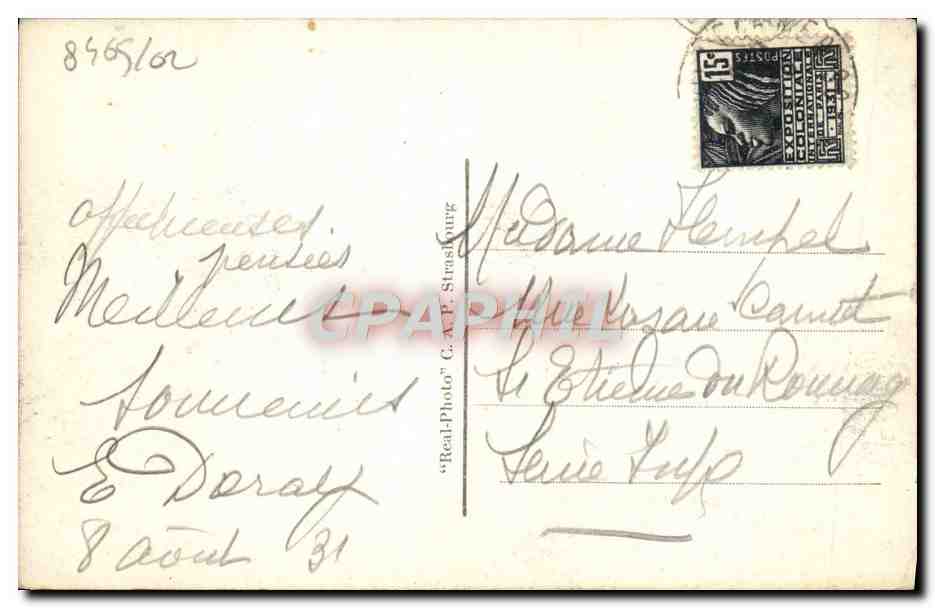 8465/02
affectueuses
pensées
Meilleurs
souvenirs
E Daraly
8 Août 31
"Real-Photo" C. A. P. Strasbourg
15c
POSTES
EXPOSITION
COLONIALE
INTERNATIONALE
DE PARIS
1931
Madame Hempel
Rue Lazare Carnot
St Etienne du Rouvray
Seine Infre
CPAPHIL